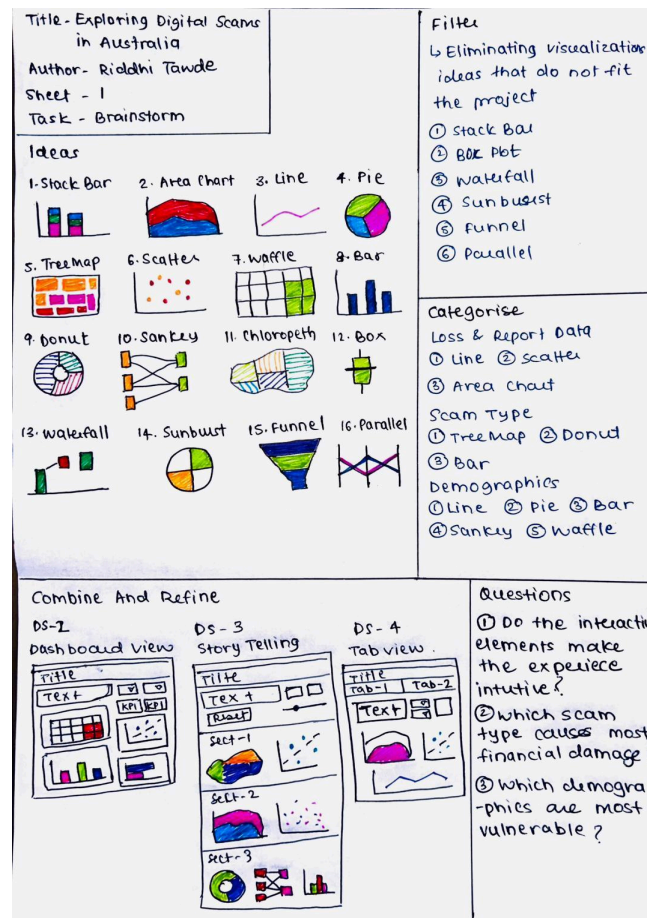 Title - Exploring Digital Scams
in Australia
Author - Riddhi Tawde
Sheet - 1
Task - Brainstorm
Ideas
1. Stack Bar
2. Area Chart
3. Line
4. Pie
5. TreeMap
6. Scatter
7. Waffle
8. Bar
9. Donut
10. Sankey
11. Chloropeth
12. Box
13. Waterfall
14. Sunburst
15. Funnel
16. Parallel
Filter
↳ Eliminating visualization
ideas that do not fit
the project
① Stack Bar
② Box Plot
③ Waterfall
④ Sunburst
⑤ Funnel
⑥ Parallel
Categorise
Loss & Report Data
① Line ② Scatter
③ Area Chart
Scam Type
① TreeMap ② Donut
③ Bar
Demographics
① Line ② Pie ③ Bar
④ Sankey ⑤ Waffle
Combine And Refine
DS-2
Dashboard View
Title
Text
KPI KPI
DS-3
Story Telling
Tilte
Text
Reset
Sect-1
Sect-2
Sect-3
DS-4
Tab view.
Title
Tab-1 Tab-2
Text
Questions
① Do the interacti
elements make
the experiece
intutive?
② Which scam
type causes most
financial damage
③ Which demogra
-phics are most
vulnerable?